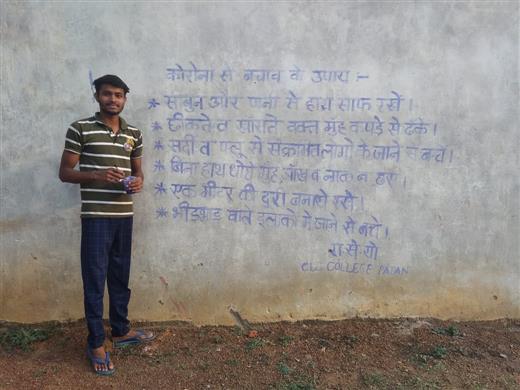 कोरोना से बचाव के उपाय :-
* साबुन और पानी से हाथ साफ रखें।
* छीकते व खांसते वक्त मुंह कपड़े से ढंके।
* सर्दी व फ्लू से संक्रमित लोगो के जाने से बचें।
* बिना हाथ धोये मुंह, आँख व नाक न छुए।
* एक मीटर की दूरी बनाये रखे।
* भीड़भाड़ वाले इलाको में जाने से बचें।
रा. से. यो
COLLEGE PATAN